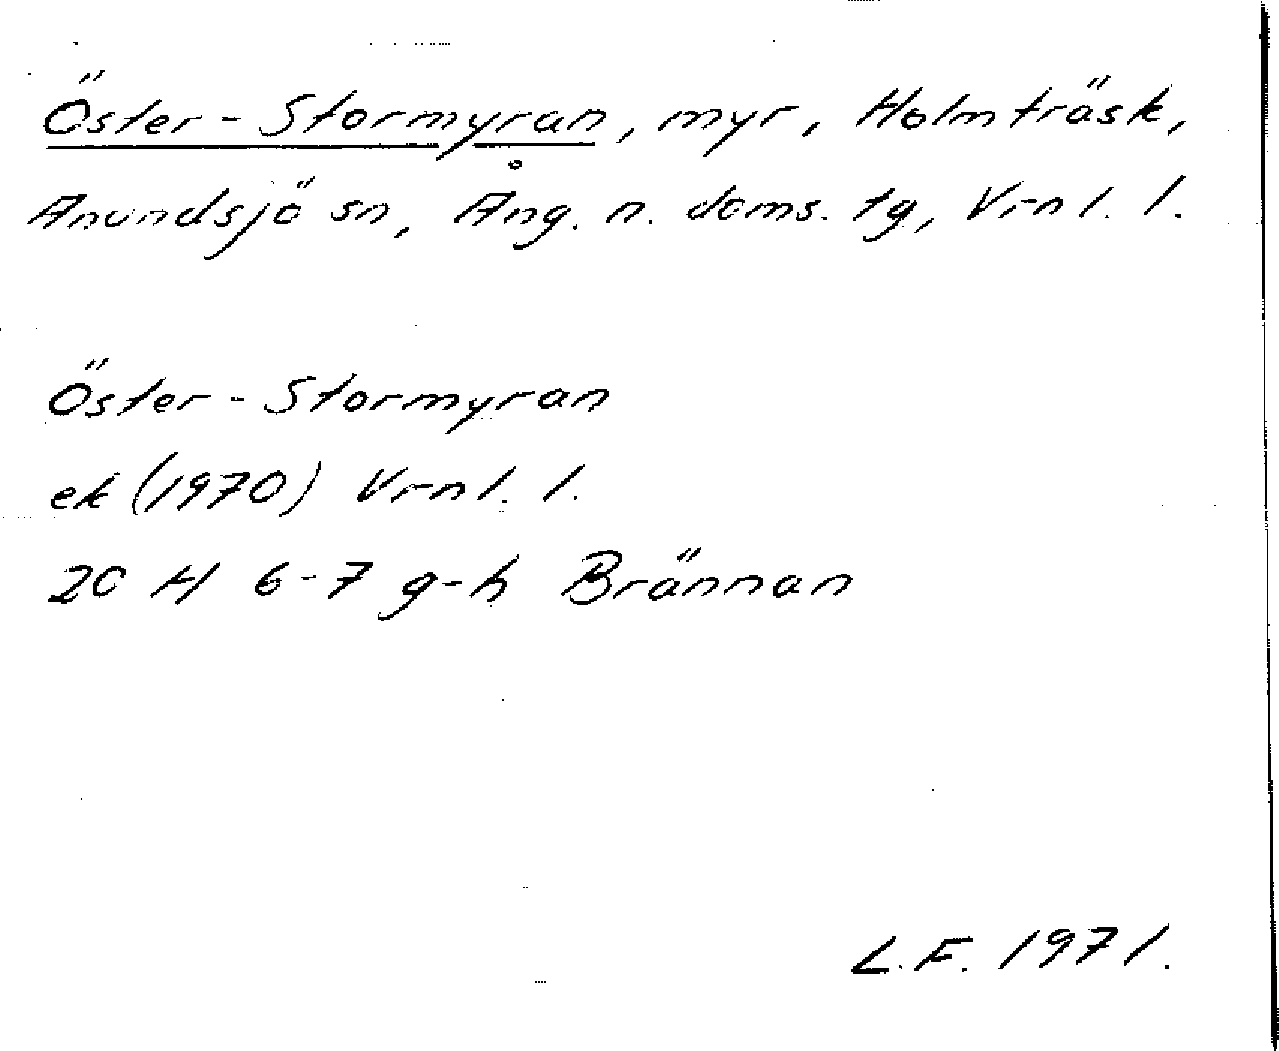 Öster-Stormyran, myr, Holmträsk,
Anundsjö sn, Ång. n. doms. tg, Vrnl. l.
Öster-Stormyran
ek (1970) Vrnl. l.
20 H 6-7 g-h Brännan
L.F. 1971.